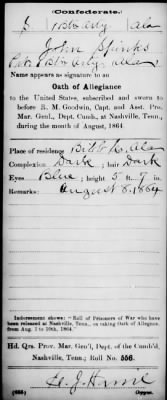 Confederate.
S | Arty | Ala
John Spinks
Pvt Arty, Ala
Name appears as signature to an
Oath of Allegiance
to the United States, subscribed and sworn to
before R. M. Goodwin, Capt. and Asst. Pro.
Mar. Genl., Dept. Cumb., at Nashville, Tenn.,
during the month of August, 1864.
Place of residence Bibb Co, Ala
Complexion Dark ; hair Dark
Eyes Blue ; height 5 ft. 7 in.
Remarks: August 8, 1864
Indorsement shows: "Roll of Prisoners of War who
have been released at Nashville, Tenn., on taking Oath of Allegiance
from Aug. 2 to 10th, 1864."
Hd. Qrs. Prov. Mar. Gen'l, Dept. of the Cumb'd,
Nashville, Tenn.; Roll No. 556.
(658)
Copyist.